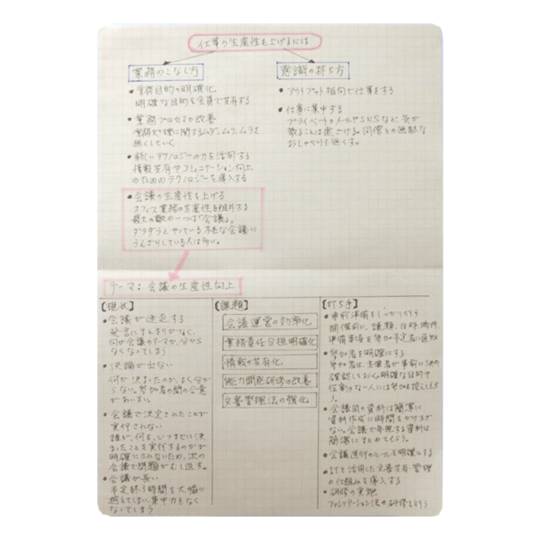 仕事の生産性を上げるには
業務のこなし方
意識の持ち方
・業務目的の明確化
明確な目的を全員で共有する
・業務プロセスの改善
業務処理に関するムダ、ムラ、ムリを
無くしていく
・新しいテクノロジーの力を活用する
情報共有やコミュニケーション向上
のためのテクノロジーを導入する
・会議の生産性を上げる
オフィス業務の生産性を阻害する
最大の敵の一つは「会議」。
ダラダラとやっている不毛な会議に
うんざりしている人は多い。
・アウトプット指向で仕事をする
・仕事に集中する
プライベートのメールやSNSなど、気が
散ることは遠ざける。同僚との無駄な
おしゃべりも無くす。
テーマ：会議の生産性向上
【現状】
・会議が迷走する
発言にまとまりがなく、
何が会議のテーマか、分から
なくなってしまう
・決論が出ない
何が決まったのか、よく分か
らない。参加者の間の合意
があいまい。
・会議で決定されたことが
実行されない
誰が、何を、いつまでに決
まったことを実行するのかが
明確にされないため、次の
会議で問題がむし返す。
・会議が長い
予定終了時間を大幅に
越えてしまい、集中力もなく
なってしまう
【課題】
会議運営の効率化
業務責任分担明確化
情報の共有化
能力開発研修の改善
文書管理法の強化
【打ち手】
・事前準備をしっかり行う
開催前に、議題、日時、場所
準備事項を参加予定者に通知
・参加者を明確にする
参加者は、主催者が事前に決め
確認しておく。明確な目的や
役割がない人には参加を控えてもら
う。
・会議前の資料は簡潔に
資料作成に時間をかけすぎ
ない。会議で使用する資料は
簡潔にまとめてもらう。
・会議進行のルールを明確にする
・ITを活用した文書共有・管理
の仕組みを導入する
・研修の実施
ファシリテーション法の研修を行う